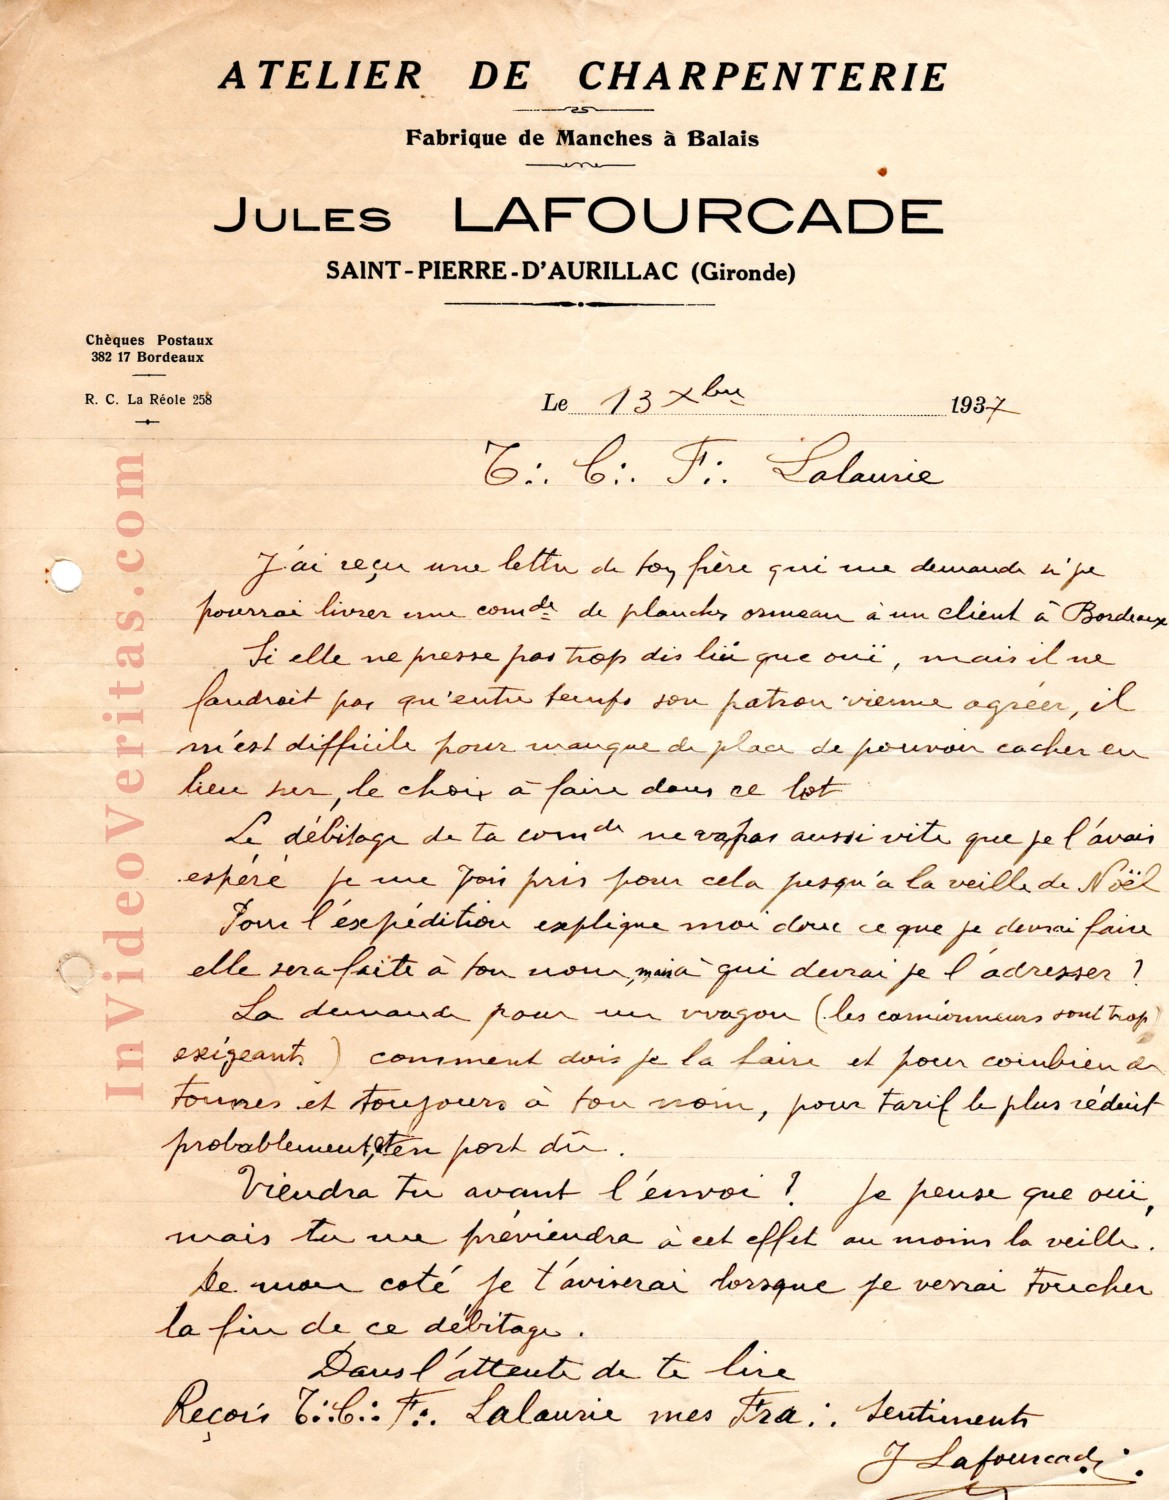 ATELIER DE CHARPENTERIE
Fabrique de Manches à Balais
JULES LAFOURCADE
SAINT-PIERRE-D'AURILLAC (Gironde)
Chèques Postaux
382 17 Bordeaux
R. C. La Réole 258
Le 13 Xbre 1937
T∴ C∴ F∴ Lalaurie
J'ai reçu une lettre de ton frère qui me demande si je
pourrai livrer une comde de planches ormeau à un client à Bordeaux
Si elle ne presse pas trop dis lui que ouï, mais il ne
faudrait pas qu'entre temps son patron vienne agréer, il
m'est difficile pour manque de place de pouvoir cacher en
lieu sur, le choix à faire dans ce lot
Le débitage de ta comde ne va pas aussi vite que je l'avais
espéré je me vois pris pour cela jusqu'à la veille de Noël
Pour l'éxpédition explique moi donc ce que je devrai faire
elle sera faite à ton nom, mais à qui devrai je l'adresser ?
La demande pour un wagon (les camionneurs sont trop
exigeants) comment dois je la faire et pour combien de
tonnes et toujours à ton nom, pour tarif le plus réduit
probablement, et en port dû.
Viendra tu avant l'envoi ? Je pense que ouï,
mais tu me préviendra à cet effet au moins la veille.
De mon coté je t'aviserai lorsque je verrai toucher
la fin de ce débitage.
Dans l'attente de te lire
Reçois T∴C∴F∴ Lalaurie mes Fra∴ sentiments
J Lafourcade
InVideoVeritas.com